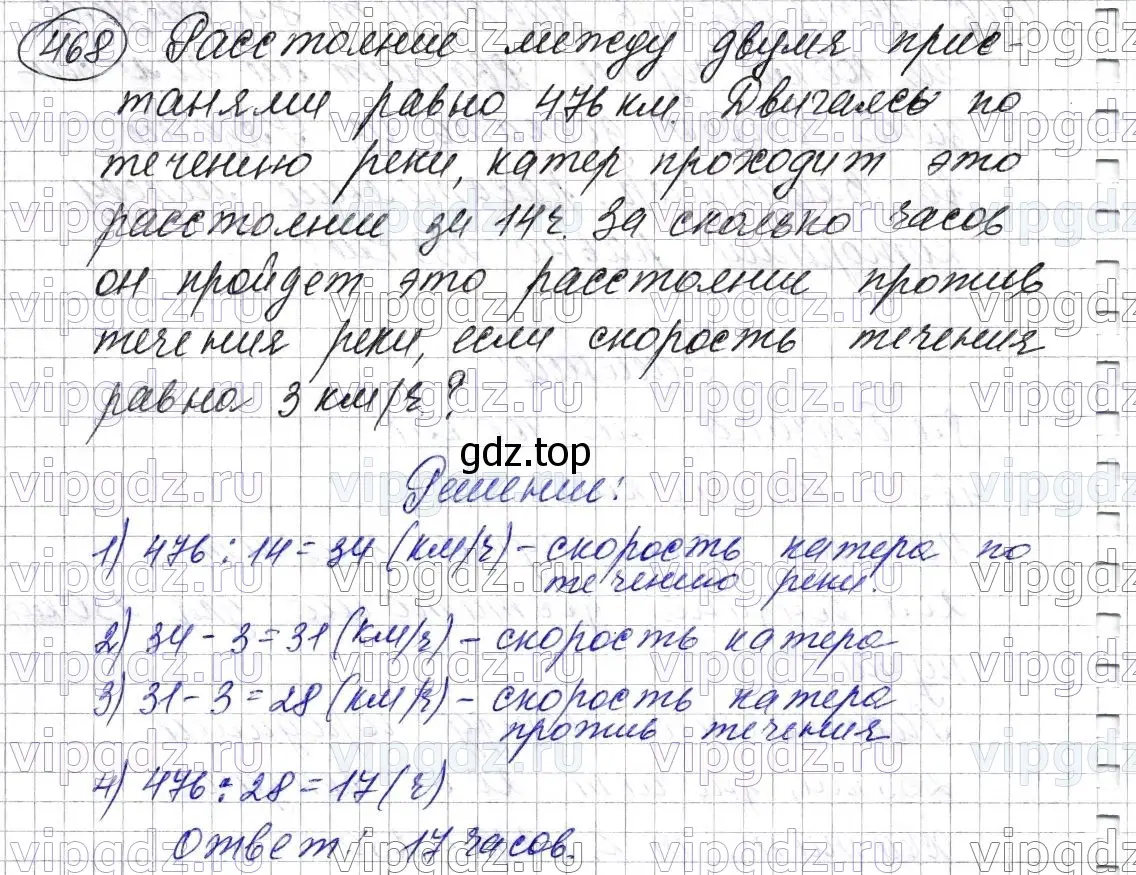 468 Расстояние между двумя прис-
танями равно 476 км. Двигаясь по
течению реки, катер проходит это
расстояние за 14 ч. За сколько часов
он пройдет это расстояние против
течения реки, если скорость течения
равна 3 км/ч?
gdz.top
Решение:
1) 476 : 14 = 34 (км/ч) - скорость катера по
течению реки.
2) 34 - 3 = 31 (км/ч) - скорость катера
3) 31 - 3 = 28 (км/ч) - скорость катера
против течения
4) 476 : 28 = 17 (ч)
Ответ: 17 часов.
vipgdz.ru